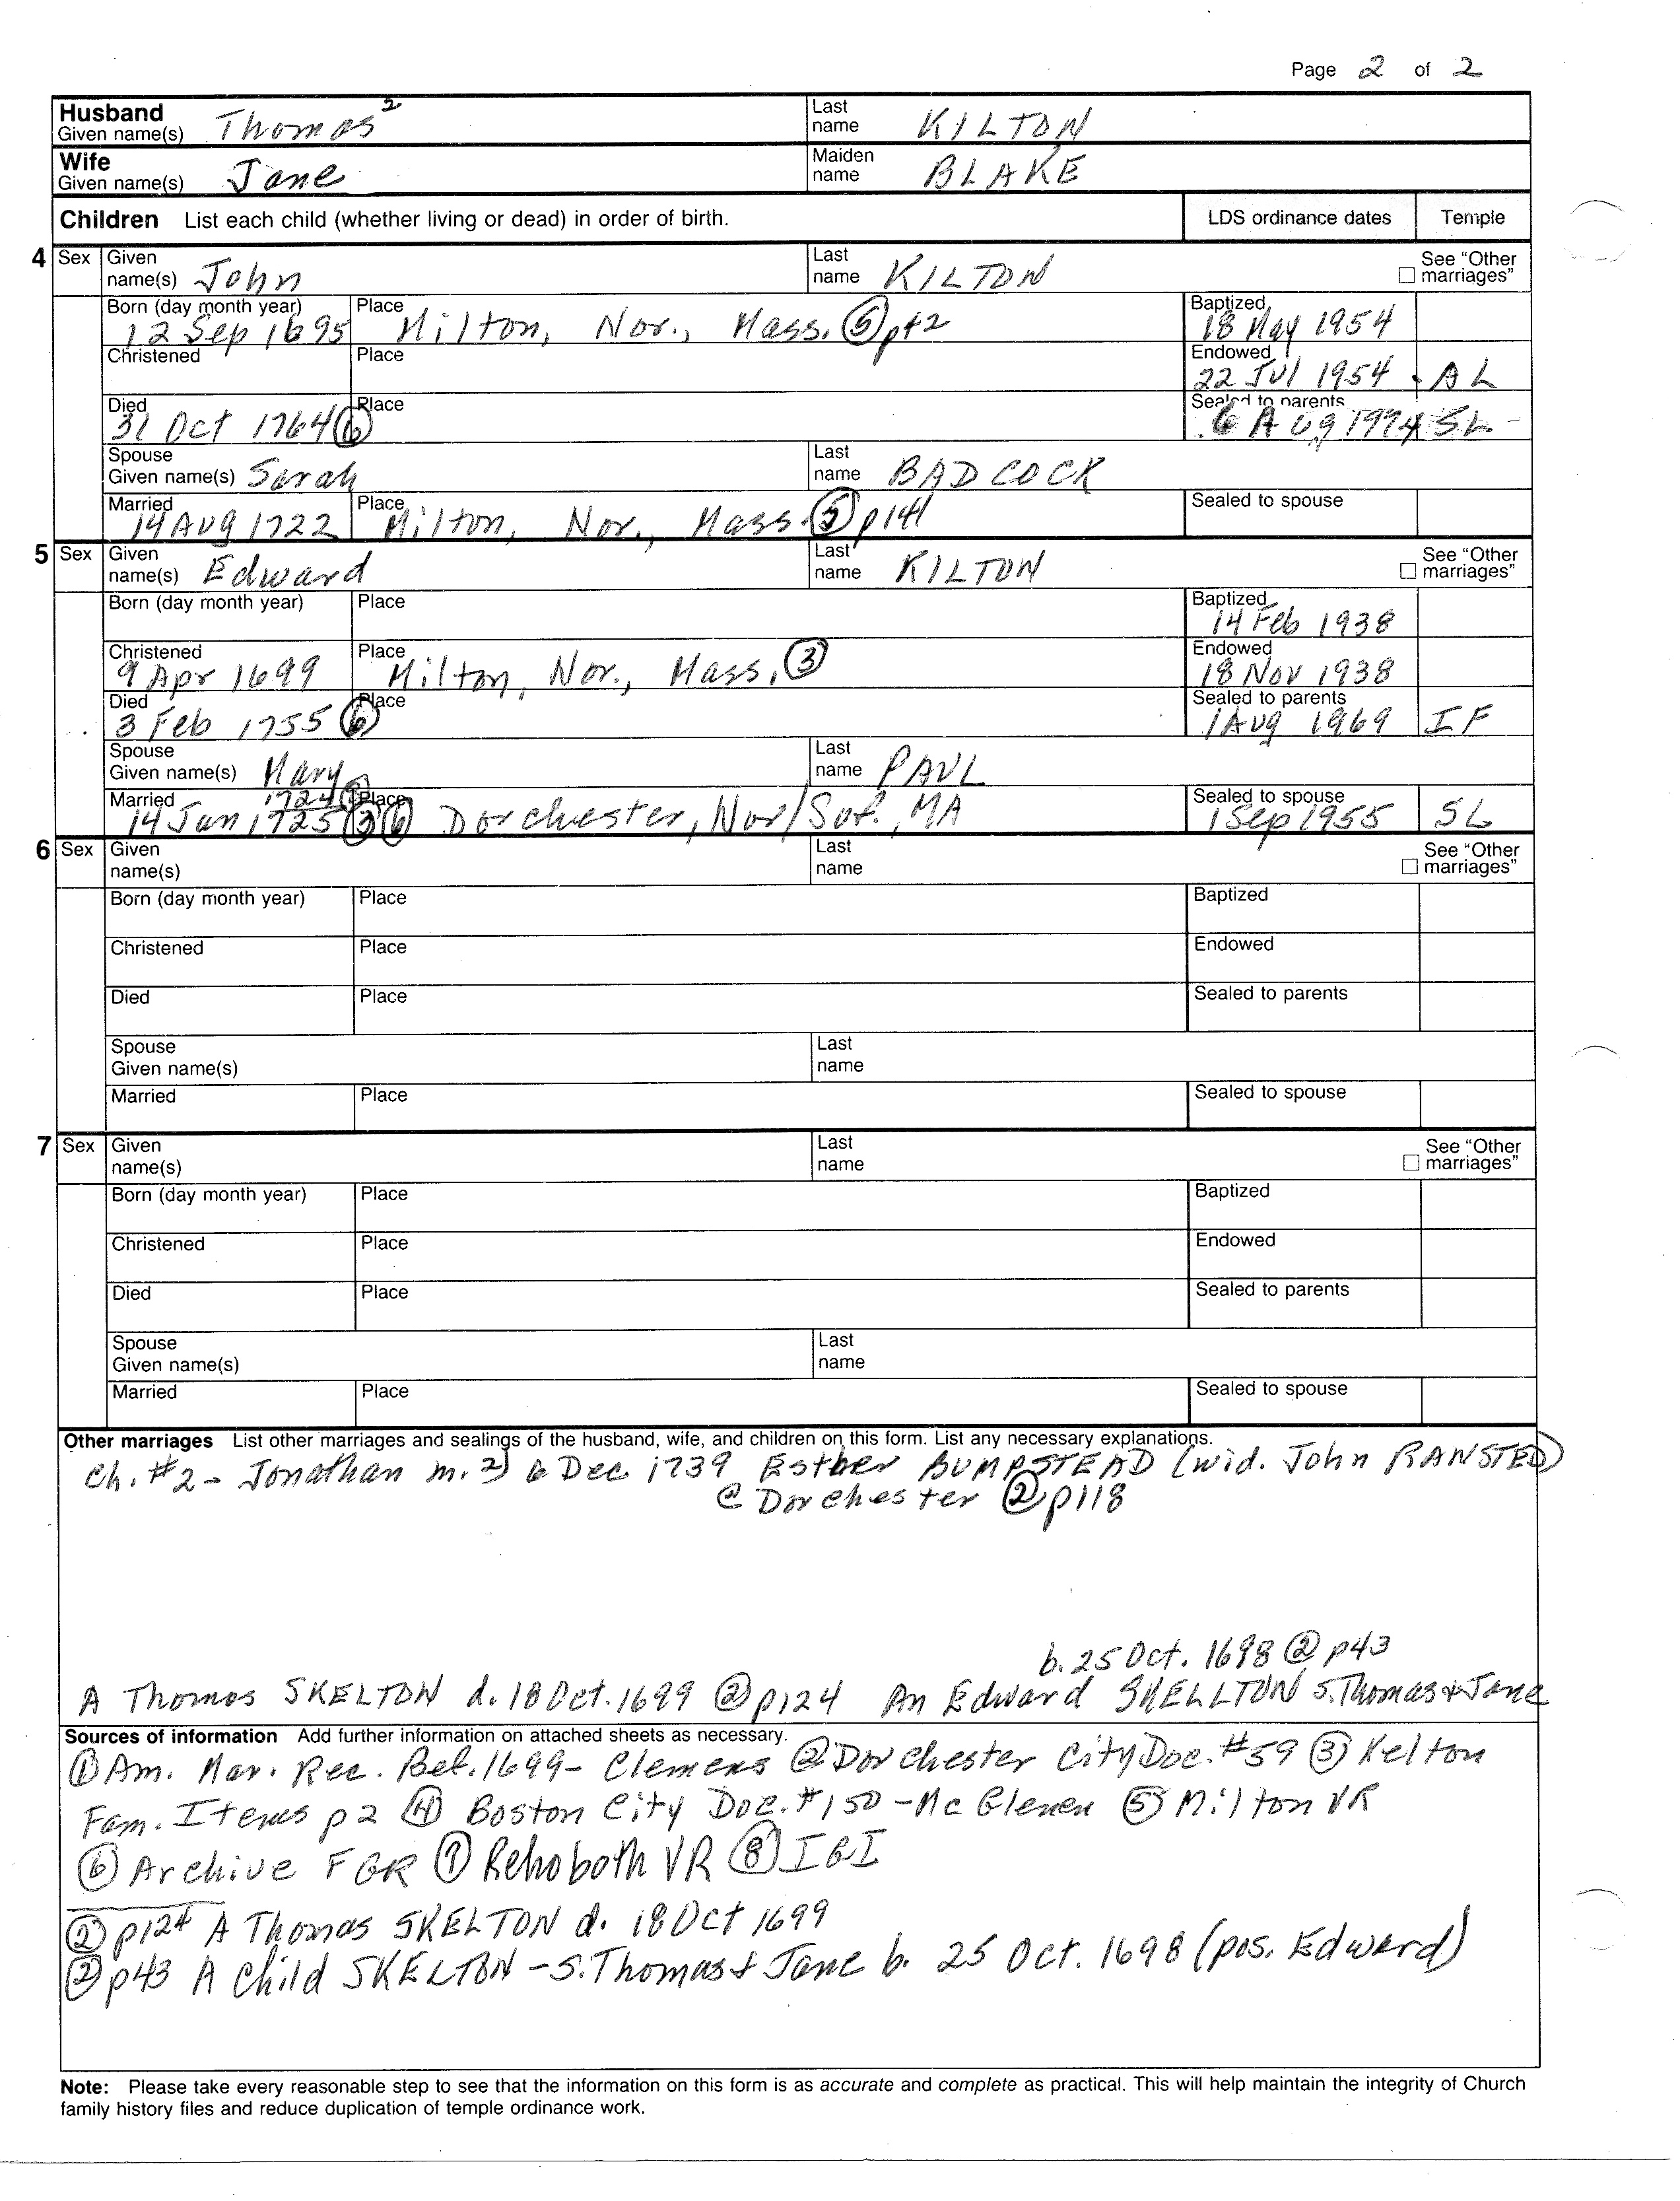 Page 2 of 2
Husband Given name(s) Thomas² Last name KILTON
Wife Given name(s) Jane Maiden name BLAKE
Children List each child (whether living or dead) in order of birth. LDS ordinance dates Temple
4 Sex Given name(s) John Last name KILTON See "Other marriages"
Born (day month year) 12 Sep 1695 Place Milton, Nor., Mass. ⑤ pt2 Baptized 18 May 1954
Christened Place Endowed 22 Jul 1954 AL
Died 31 Oct 1764 ⑥ Place Sealed to parents 6 Aug 1994 SL
Spouse Given name(s) Sarah Last name BADCOCK
Married 14 Aug 1722 Place Milton, Nor., Mass. ⑤ p141 Sealed to spouse
5 Sex Given name(s) Edward Last name KILTON See "Other marriages"
Born (day month year) Place Baptized 14 Feb 1938
Christened 9 Apr 1699 Place Milton, Nor., Mass. ③ Endowed 18 Nov 1938
Died 3 Feb 1755 ⑥ Place Sealed to parents 1 Aug 1969 IF
Spouse Given name(s) Mary Last name PAUL
Married 14 Jan 1724 1725 ③ ⑥ Place Dorchester, Nor/Suf., MA Sealed to spouse 1 Sep 1955 SL
6 Sex Given name(s) Last name See "Other marriages"
Born (day month year) Place Baptized
Christened Place Endowed
Died Place Sealed to parents
Spouse Given name(s) Last name
Married Place Sealed to spouse
7 Sex Given name(s) Last name See "Other marriages"
Born (day month year) Place Baptized
Christened Place Endowed
Died Place Sealed to parents
Spouse Given name(s) Last name
Married Place Sealed to spouse
Other marriages List other marriages and sealings of the husband, wife, and children on this form. List any necessary explanations.
Ch. #2 - Jonathan m. 2) 6 Dec 1739 Esther BUMPSTEAD (wid. John RANSTED)
@ Dorchester ② p118
b. 25 Oct. 1698 ② p43
A Thomas SKELTON d. 18 Oct. 1699 ② p124 An Edward SKELLTON s. Thomas & Jane
Sources of information Add further information on attached sheets as necessary.
① Am. Mar. Rec. Bef. 1699 - Clemens ② Dorchester City Doc. #59 ③ Kelton
Fam. Items p2 ④ Boston City Doc. #150 - McGlenen ⑤ Milton VR
⑥ Archive FGR ⑦ Rehoboth VR ⑧ IGI
② p124 A Thomas SKELTON d. 18 Oct 1699
② p43 A Child SKELTON - s. Thomas & Jane b. 25 Oct. 1698 (pos. Edward)
Note: Please take every reasonable step to see that the information on this form is as accurate and complete as practical. This will help maintain the integrity of Church
family history files and reduce duplication of temple ordinance work.